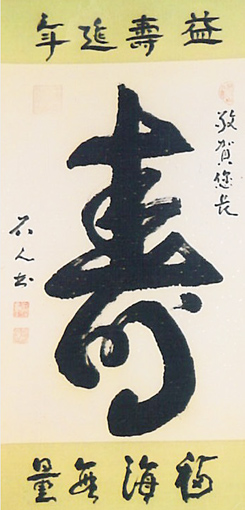 益壽延年
敬賀您長
壽
石人书
福海無量